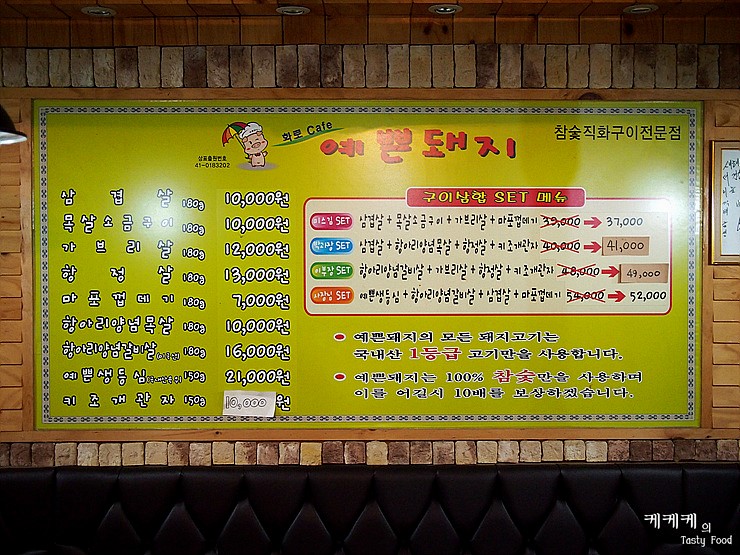 화로 Cafe
예쁜돼지
참숯직화구이전문점
상표출원번호
41-0183202
삼겹살 180g 10,000원
목살소금구이 180g 10,000원
가브리살 180g 12,000원
항정살 180g 13,000원
마포껍데기 180g 7,000원
항아리양념목살 180g 10,000원
항아리양념갈비살 180g 16,000원
예쁜생등심 150g 21,000원
키조개관자 150g 10,000원
구이삼합 SET 메뉴
미스김 SET 삼겹살 + 목살소금구이 + 가브리살 + 마포껍데기 39,000 → 37,000
박과장 SET 삼겹살 + 항아리양념목살 + 항정살 + 키조개관자 40,000 → 41,000
이부장 SET 항아리양념갈비살 + 가브리살 + 항정살 + 키조개관자 48,000 → 49,000
사장님 SET 예쁜생등심 + 항아리양념갈비살 + 삼겹살 + 마포껍데기 54,000 → 52,000
예쁜돼지의 모든 돼지고기는
국내산 1등급 고기만을 사용합니다.
예쁜돼지는 100% 참숯만을 사용하며
이를 어길시 10배를 보상하겠습니다.
케케케의
Tasty Food